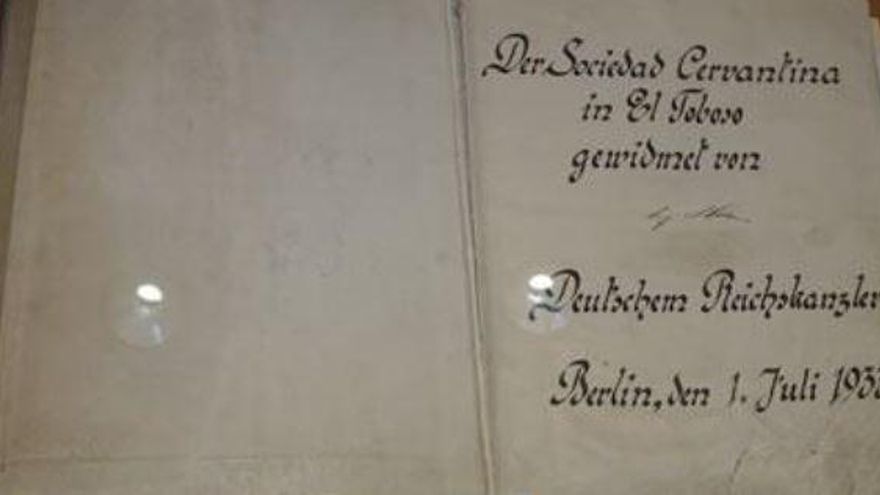 Der Sociedad Cervantina
in El Toboso
gewidmet von
Deutschem Reichskanzler
Berlin, den 1. Juli 193